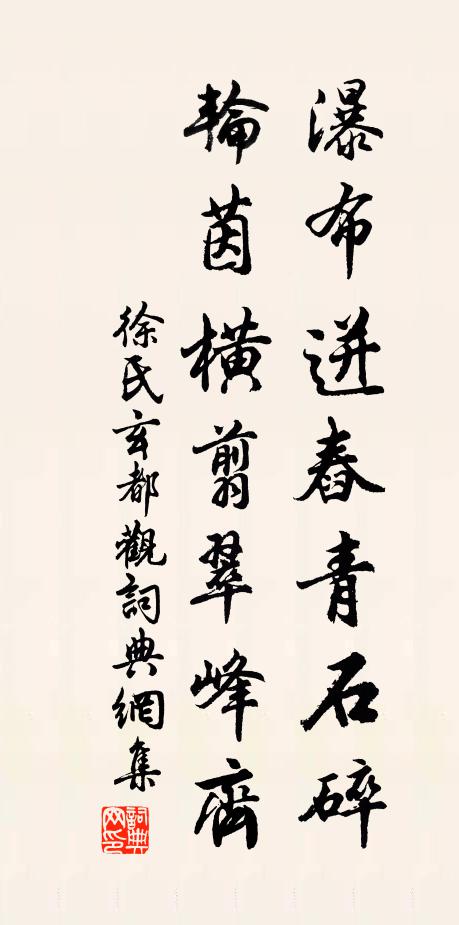 瀑布迸舂青石碎
輪茵橫翦翠峰齊
徐氏玄都觀詞典網集
詞典网印